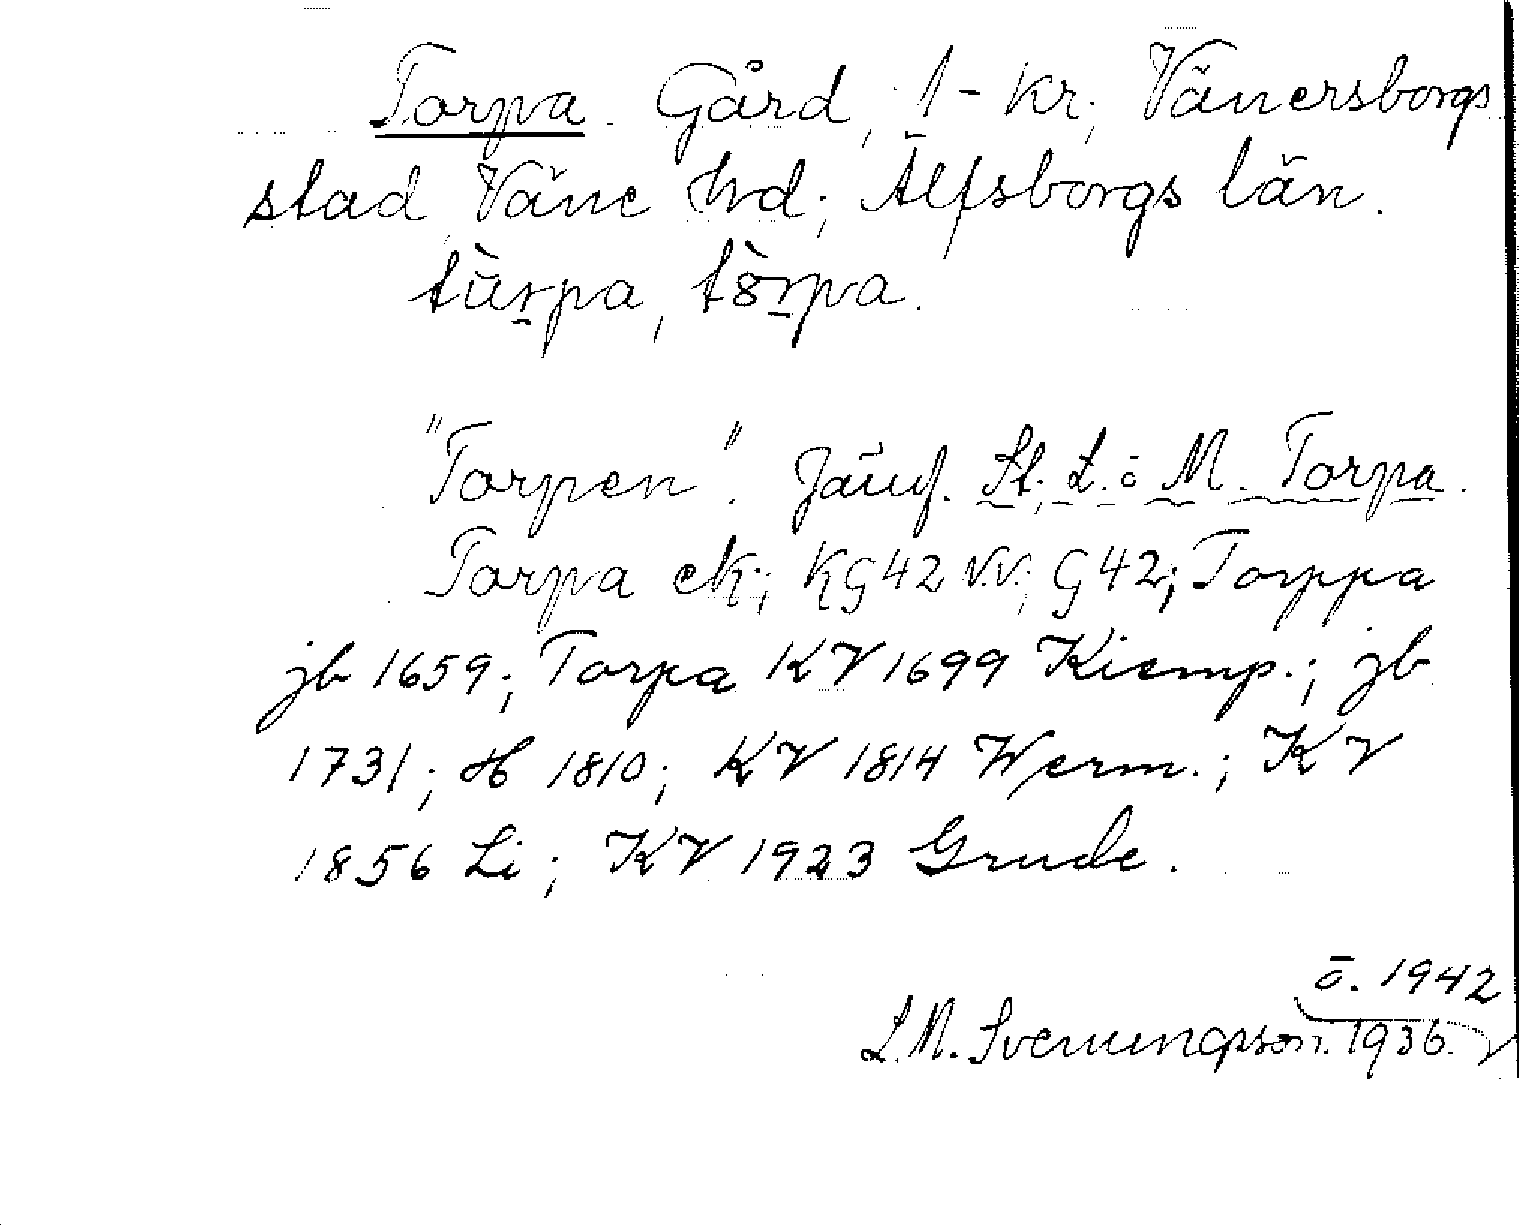 Torpa. Gård, 1 - Kr, Vänersborgs
stad, Väne Hrd; Älfsborgs län.
tùrpa, tòrpa.
"Torpen". Jämf. St. L. o M. Torpa.
Torpa ek; KG42 V.V; G42; Torppa
jb 1659; Torpa KV 1699 Kiemp.; jb
1731; H 1810; KV 1814 Werm.; KV
1856 Li; KV 1923 Grude.
ō. 1942
L. M. Svenungsson. 1936.